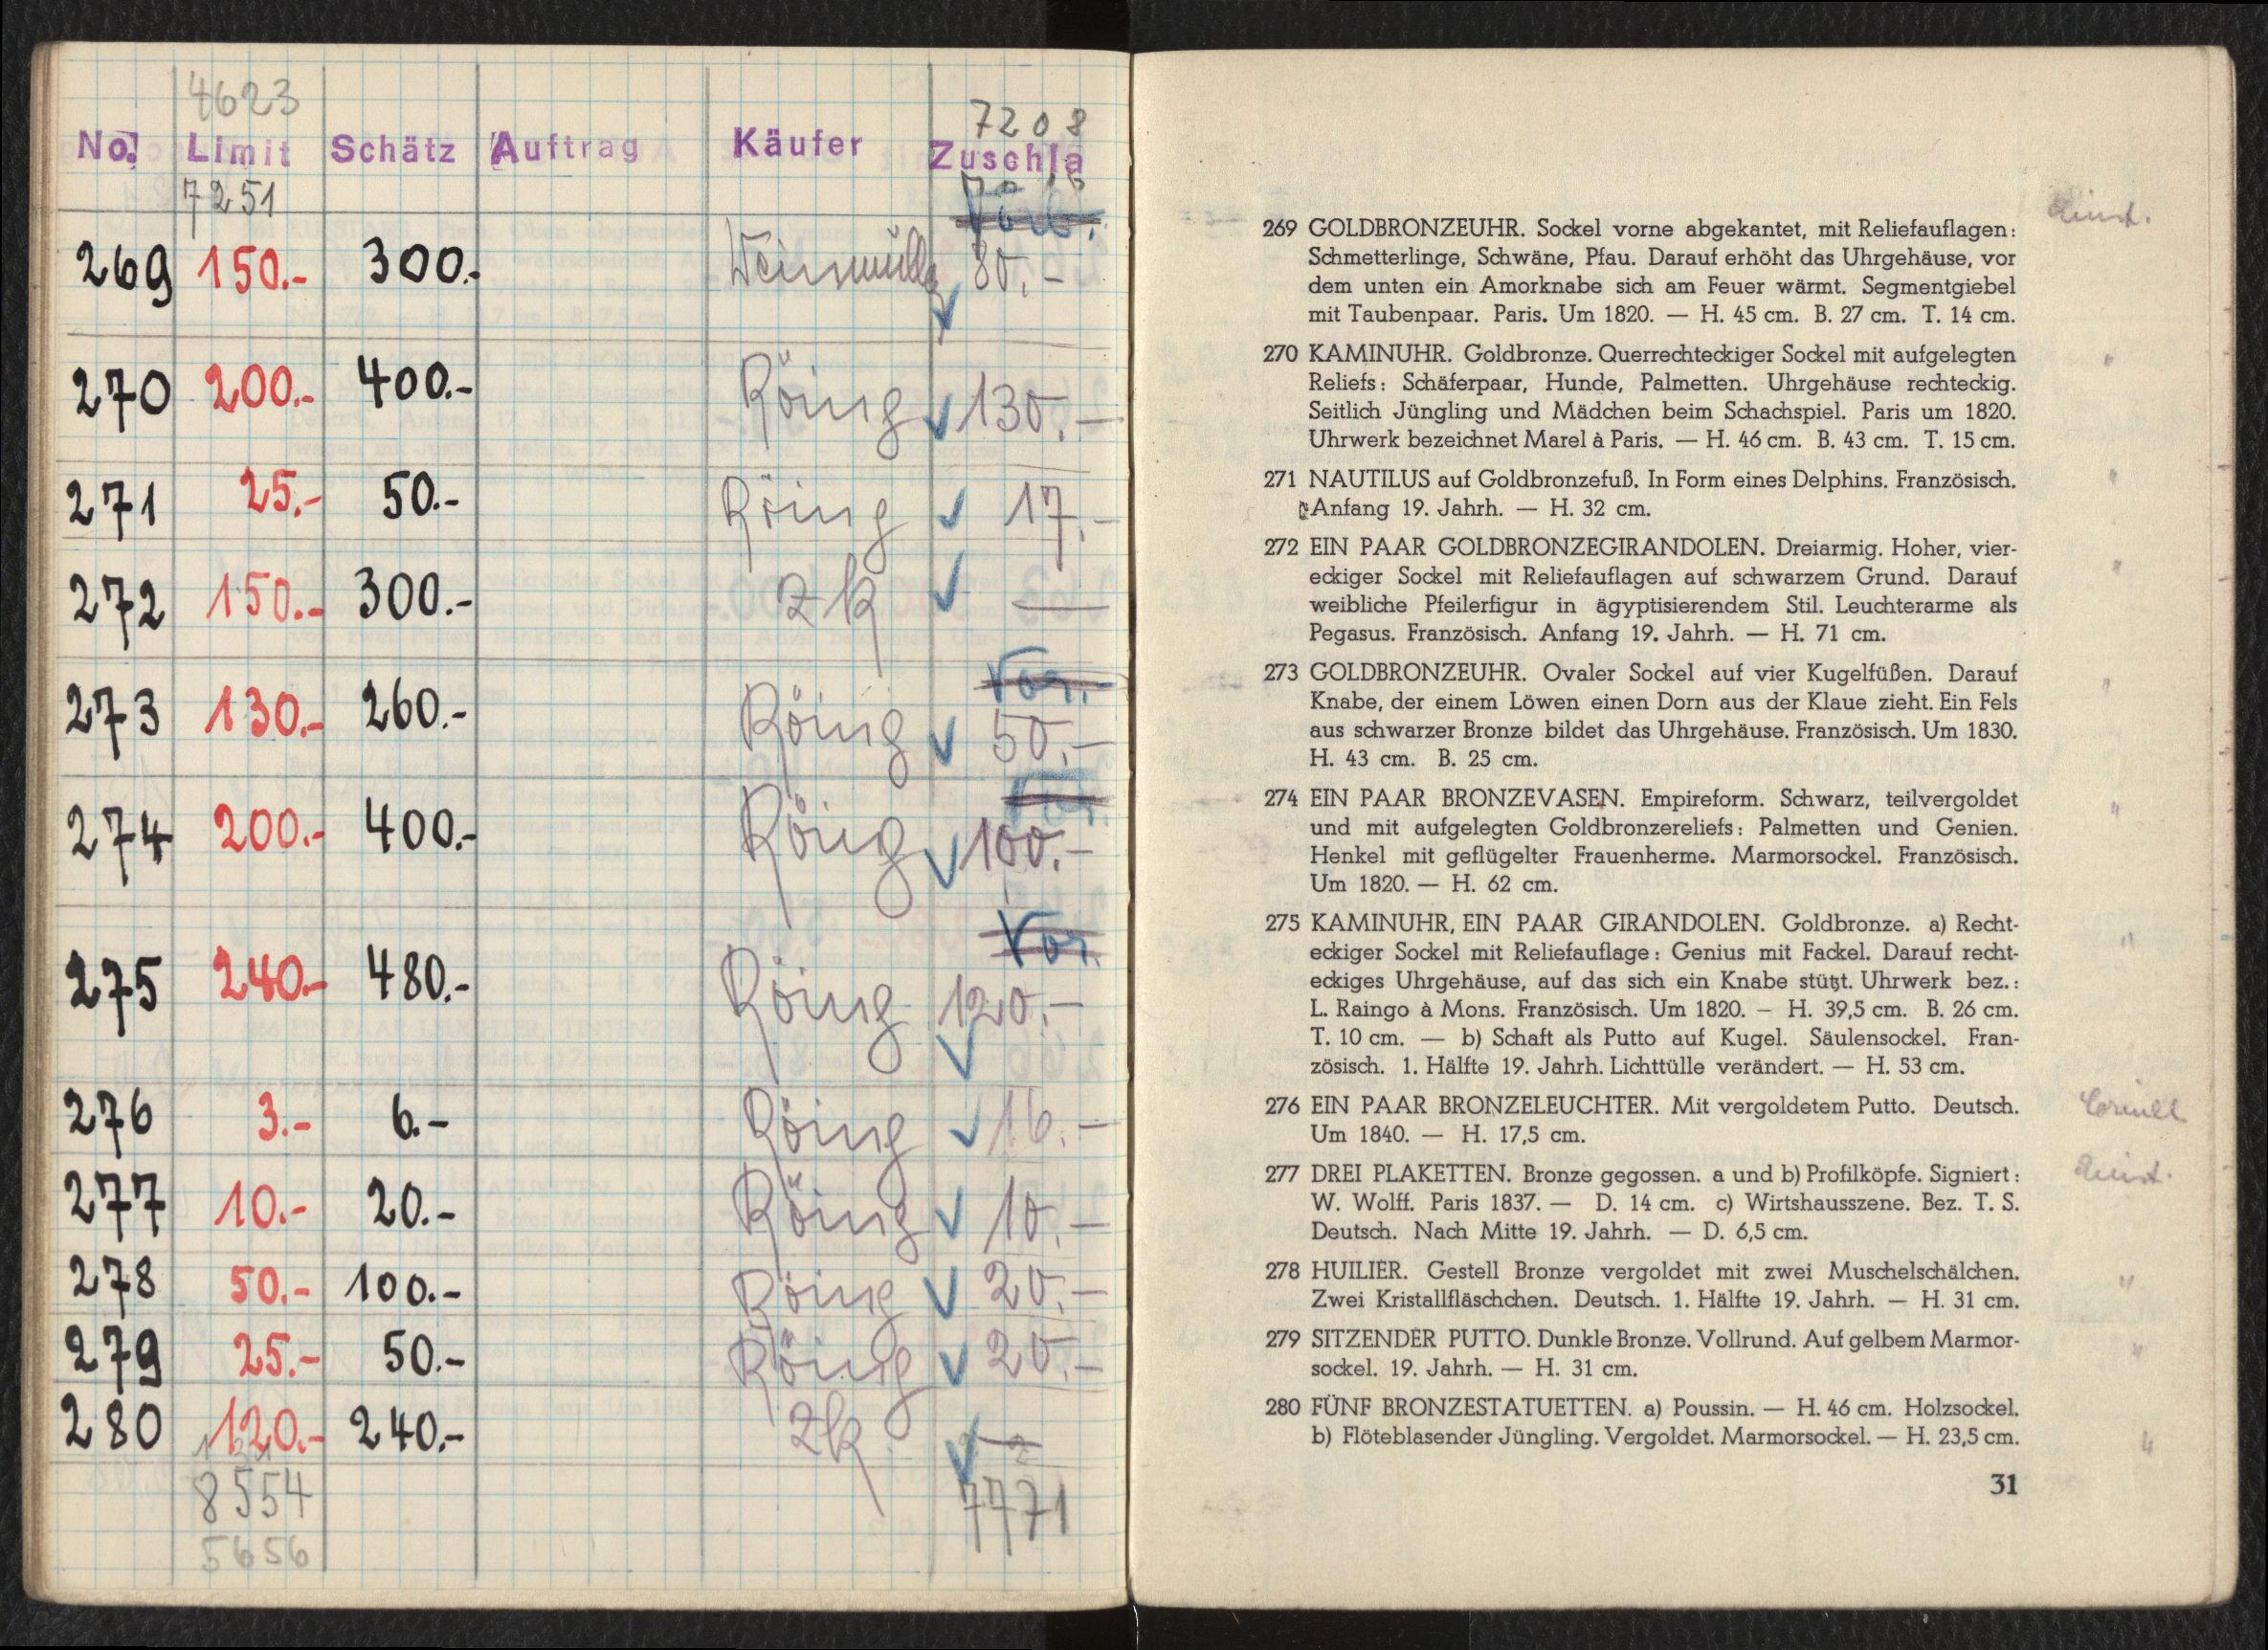 4623
7208
No. Limit Schätz Auftrag Käufer Zuschla
7251
269 150.- 300.- 80.-
270 200.- 400.- Röing 130.-
271 25.- 50.- Röing 17.-
272 150.- 300.- zk —
Vor.
273 130.- 260.- Röing 50.-
274 200.- 400.- Röing 100.-
Vor.
275 240.- 480.- Röing 120.-
276 3.- 6.- Röing 16.-
277 10.- 20.- Röing 10.-
278 50.- 100.- Röing 20.-
279 25.- 50.- Röing 20.-
280 120.- 240.- zk —
8554
7771
5656
269 GOLDBRONZEUHR. Sockel vorne abgekantet, mit Reliefauflagen:
Schmetterlinge, Schwäne, Pfau. Darauf erhöht das Uhrgehäuse, vor
dem unten ein Amorknabe sich am Feuer wärmt. Segmentgiebel
mit Taubenpaar. Paris. Um 1820. — H. 45 cm. B. 27 cm. T. 14 cm.
270 KAMINUHR. Goldbronze. Querrechteckiger Sockel mit aufgelegten "
Reliefs: Schäferpaar, Hunde, Palmetten. Uhrgehäuse rechteckig.
Seitlich Jüngling und Mädchen beim Schachspiel. Paris um 1820.
Uhrwerk bezeichnet Marel à Paris. — H. 46 cm. B. 43 cm. T. 15 cm.
271 NAUTILUS auf Goldbronzefuß. In Form eines Delphins. Französisch. "
Anfang 19. Jahrh. — H. 32 cm.
272 EIN PAAR GOLDBRONZEGIRANDOLEN. Dreiarmig. Hoher, vier- "
eckiger Sockel mit Reliefauflagen auf schwarzem Grund. Darauf
weibliche Pfeilerfigur in ägyptisierendem Stil. Leuchterarme als
Pegasus. Französisch. Anfang 19. Jahrh. — H. 71 cm.
273 GOLDBRONZEUHR. Ovaler Sockel auf vier Kugelfüßen. Darauf "
Knabe, der einem Löwen einen Dorn aus der Klaue zieht. Ein Fels
aus schwarzer Bronze bildet das Uhrgehäuse. Französisch. Um 1830.
H. 43 cm. B. 25 cm.
274 EIN PAAR BRONZEVASEN. Empireform. Schwarz, teilvergoldet "
und mit aufgelegten Goldbronzereliefs: Palmetten und Genien.
Henkel mit geflügelter Frauenherme. Marmorsockel. Französisch.
Um 1820. — H. 62 cm.
275 KAMINUHR, EIN PAAR GIRANDOLEN. Goldbronze. a) Recht- "
eckiger Sockel mit Reliefauflage: Genius mit Fackel. Darauf recht-
eckiges Uhrgehäuse, auf das sich ein Knabe stützt. Uhrwerk bez.:
L. Raingo à Mons. Französisch. Um 1820. — H. 39,5 cm. B. 26 cm.
T. 10 cm. — b) Schaft als Putto auf Kugel. Säulensockel. Fran-
zösisch. 1. Hälfte 19. Jahrh. Lichttülle verändert. — H. 53 cm.
276 EIN PAAR BRONZELEUCHTER. Mit vergoldetem Putto. Deutsch.
Um 1840. — H. 17,5 cm.
277 DREI PLAKETTEN. Bronze gegossen. a und b) Profilköpfe. Signiert:
W. Wolff. Paris 1837. — D. 14 cm. c) Wirtshausszene. Bez. T. S.
Deutsch. Nach Mitte 19. Jahrh. — D. 6,5 cm.
278 HUILIER. Gestell Bronze vergoldet mit zwei Muschelschälchen. "
Zwei Kristallfläschchen. Deutsch. 1. Hälfte 19. Jahrh. — H. 31 cm.
279 SITZENDER PUTTO. Dunkle Bronze. Vollrund. Auf gelbem Marmor- "
sockel. 19. Jahrh. — H. 31 cm.
280 FÜNF BRONZESTATUETTEN. a) Poussin. — H. 46 cm. Holzsockel.
b) Flöteblasender Jüngling. Vergoldet. Marmorsockel. — H. 23,5 cm. "
31